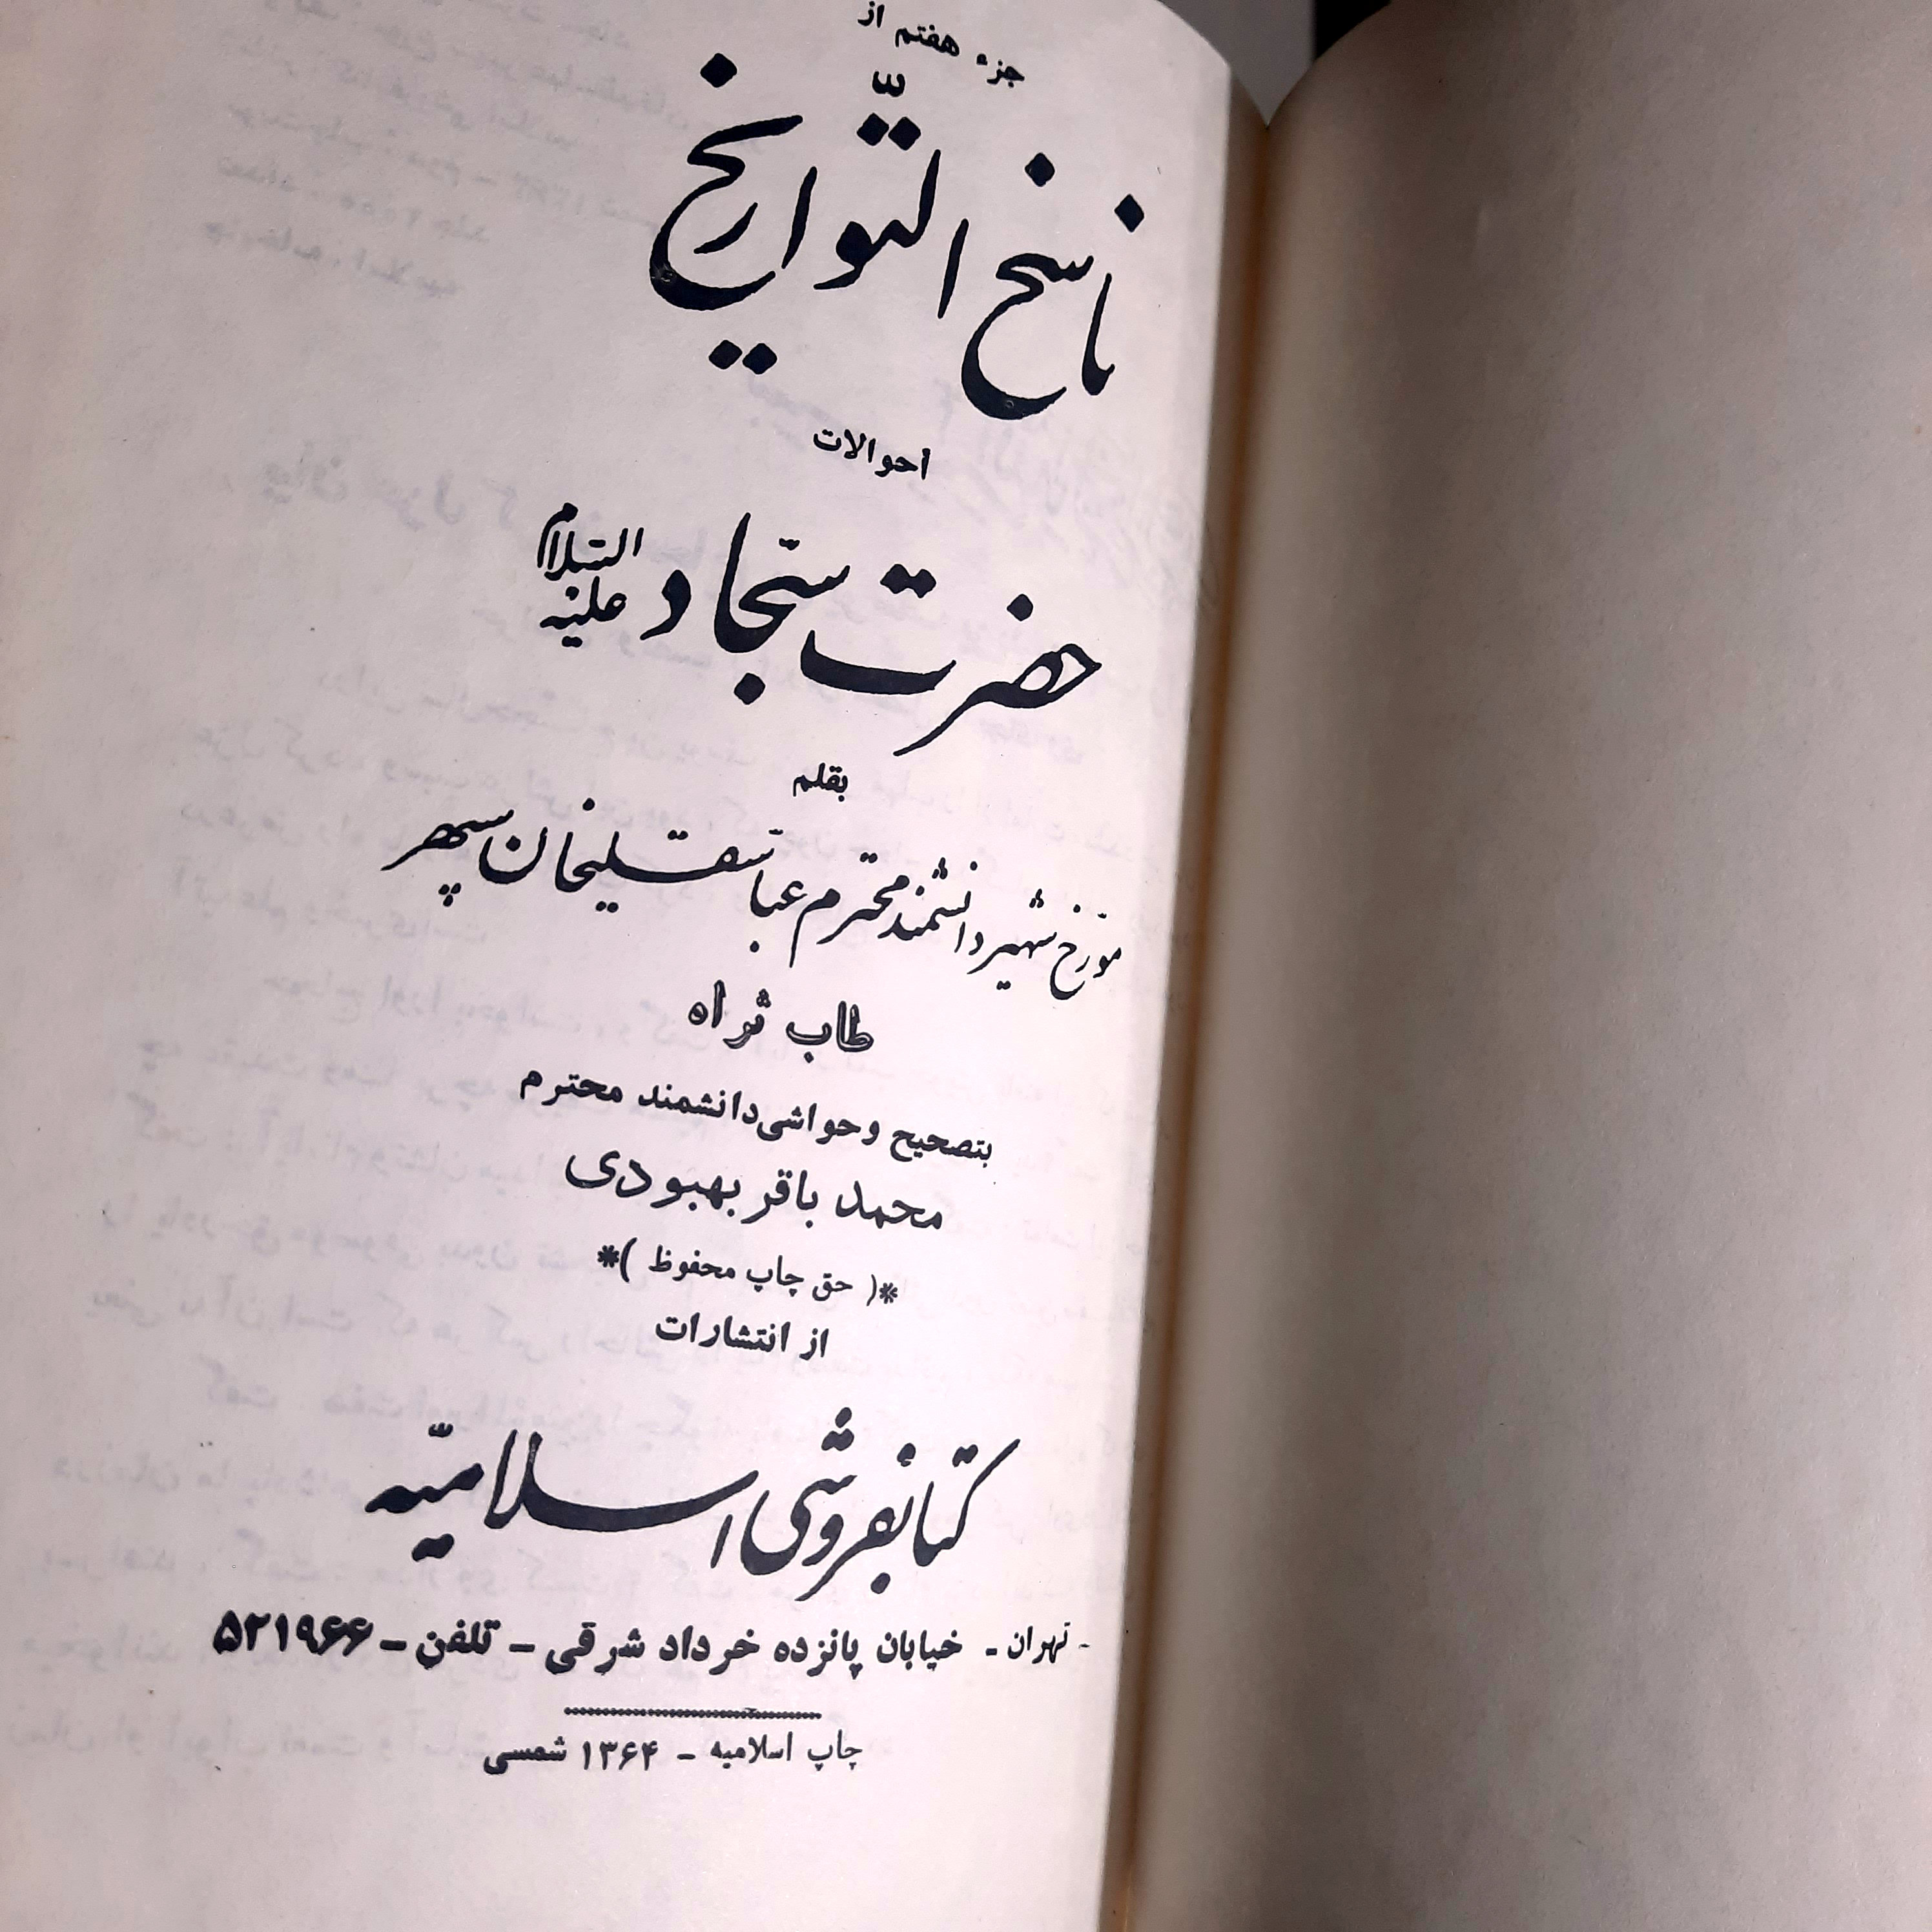 جزء هفتم از
ناسخ التّواریخ
احوالات
حضرت سجّاد علیه السّلام
بقلم
مورّخ شهیر دانشمند محترم عبّاسقلیخان سپهر
طاب ثراه
بتصحیح وحواشی دانشمند محترم
محمد باقر بهبودی
*( حق چاپ محفوظ )*
از انتشارات
کتابفروشی اسلامیّه
- تهران - خیابان پانزده خرداد شرقی - تلفن - ۵۲۱۹۶۶
چاپ اسلامیه - ۱۳۶۴ شمسی